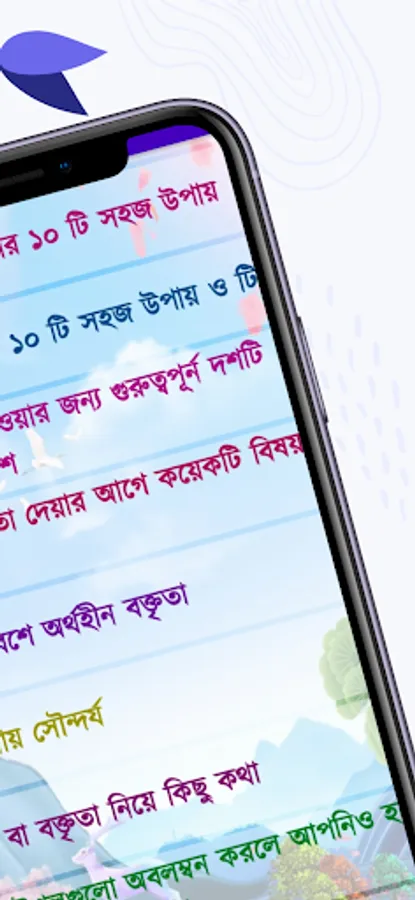 ১০ টি সহজ উপায়
১০ টি সহজ উপায় ও
জন্য গুরুত্বপূর্ন দশটি
দেয়ার আগে কয়েকটি বিষয়
অর্থহীন বক্তৃতা
সৌন্দর্য
বা বক্তৃতা নিয়ে কিছু কথা
অবলম্বন করলে আপনিও